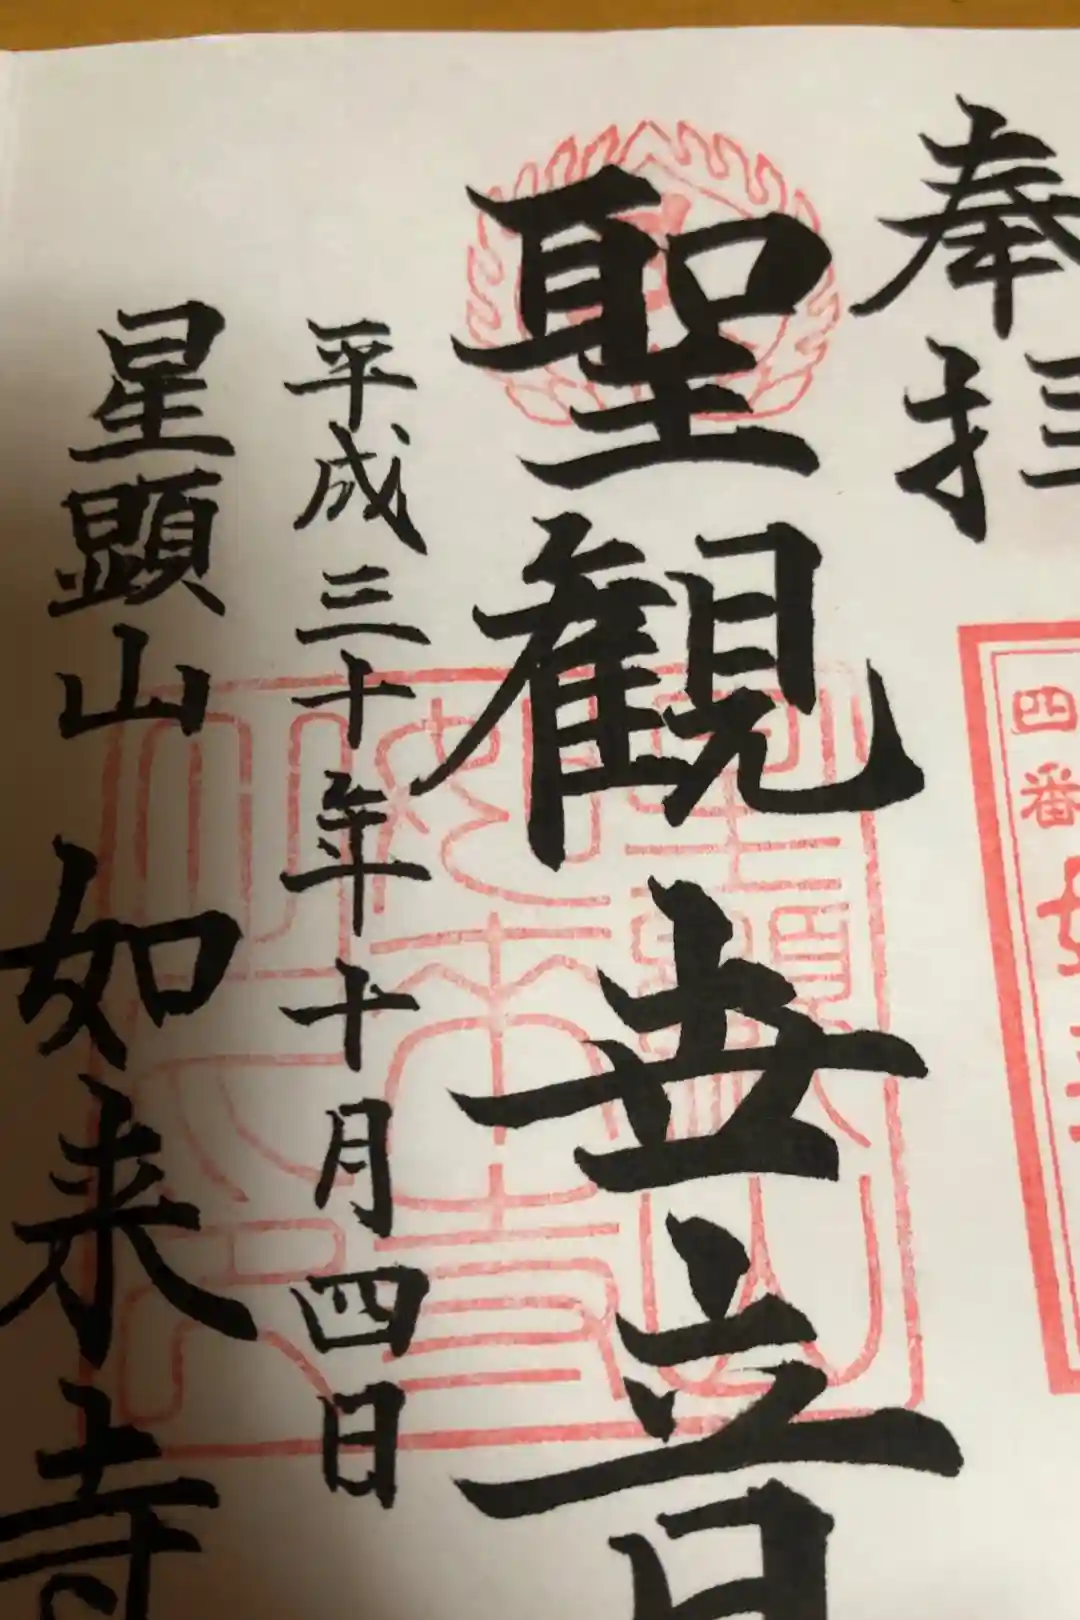 奉拝
聖観世音
平成三十年十月四日
星顕山 如来寺
四番